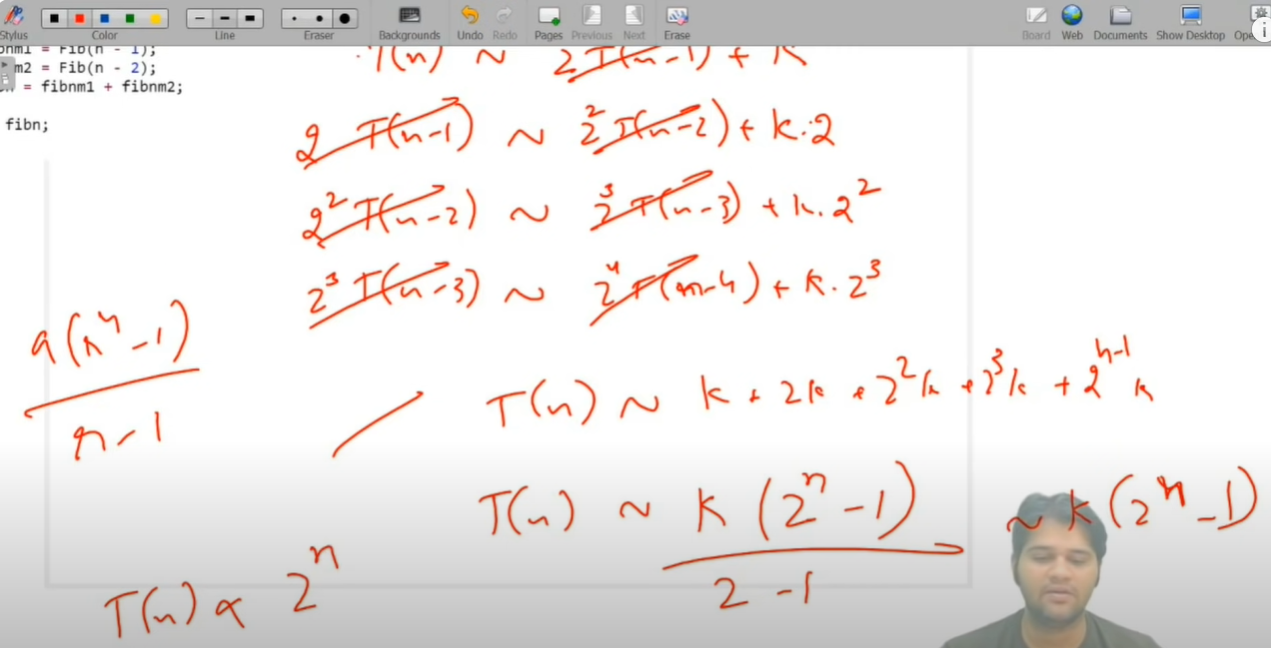 Stylus
Color
Line
Eraser
Backgrounds
Undo
Redo
Pages
Previous
Next
Erase
Board
Web
Documents
Show Desktop
i
= Fib(n - 1);
m2 = Fib(n - 2);
= fibnm1 + fibnm2;
fibn;
T(n) ~ 2T(n-1) + K
2 T(n-1) ~ 2²T(n-2) + K.2
2² T(n-2) ~ 2³T(n-3) + k.2²
2³ T(n-3) ~ 2⁴T(n-4) + K.2³
a(rⁿ-1)
r-1
T(n) ~ k + 2k + 2²k + 2³k + 2ⁿ⁻¹ k
T(n) ~ K (2ⁿ-1) ~ K (2ⁿ-1)
2-1
T(n) ∝ 2ⁿ